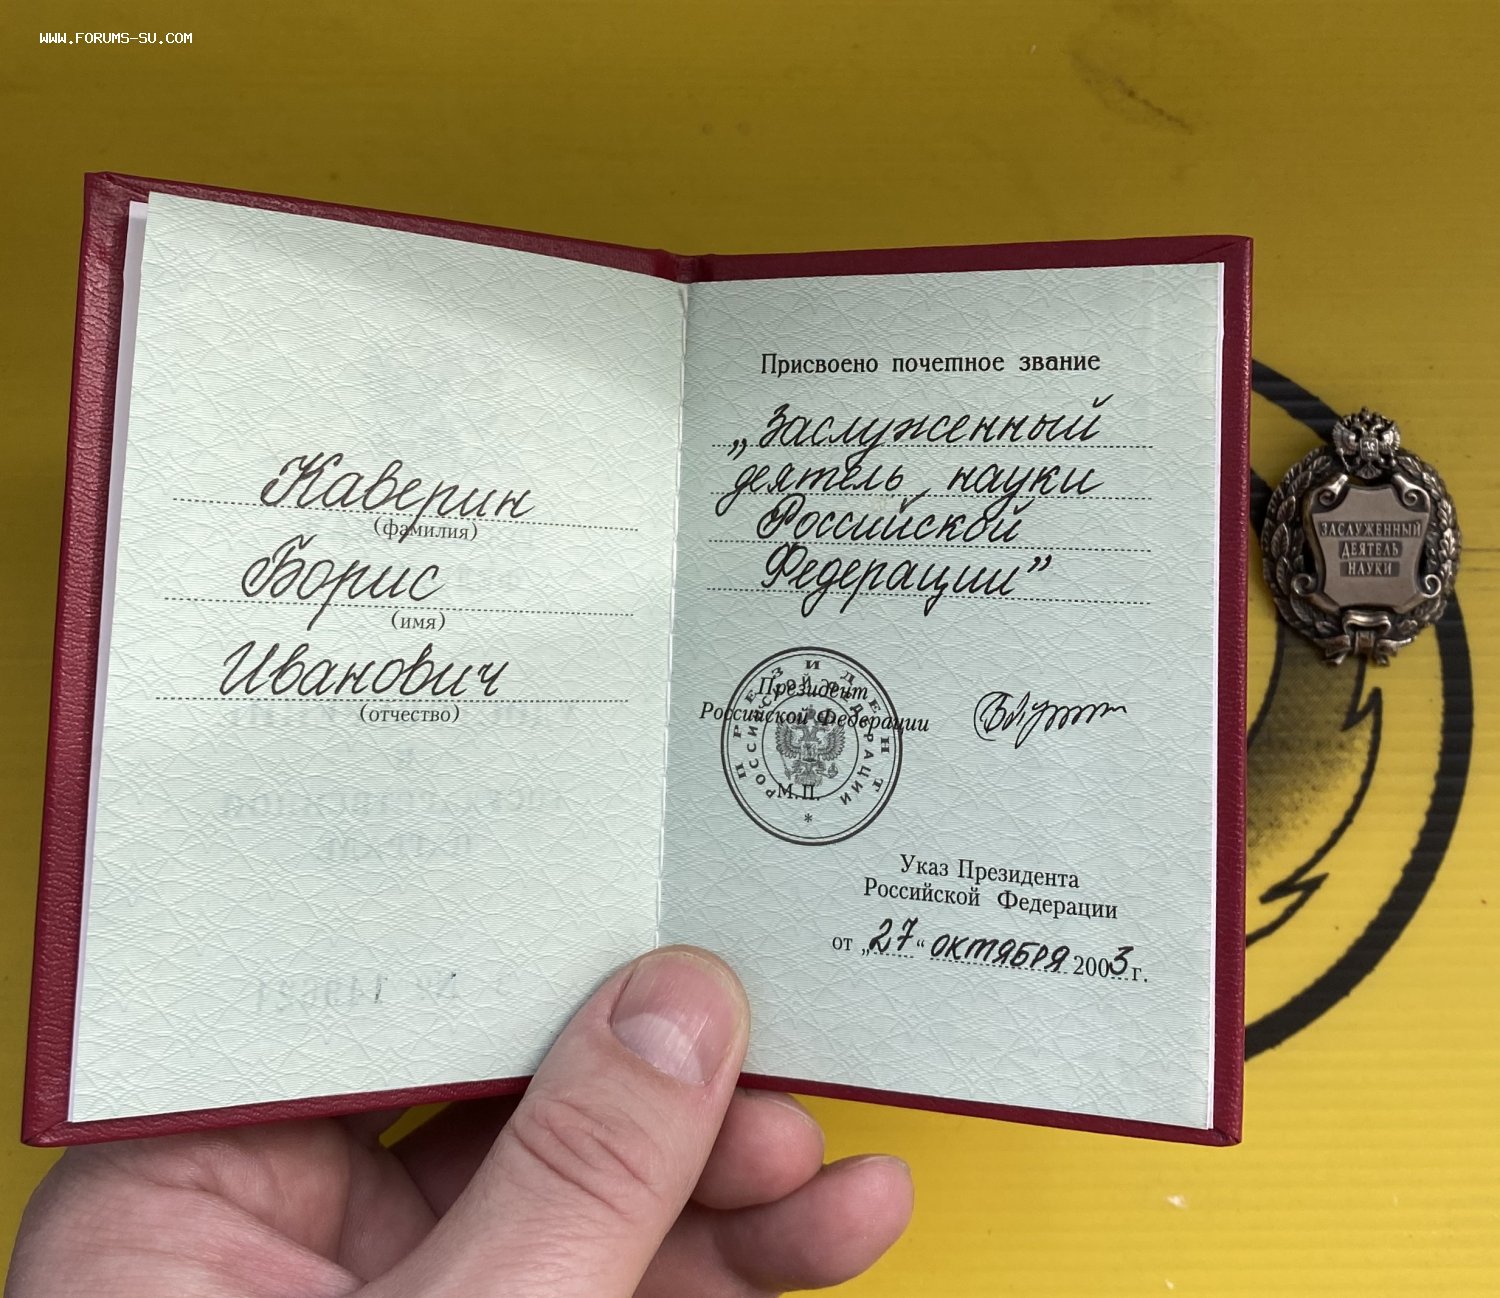 WWW.FORUMS-SU.COM
Каверин
(фамилия)
Борис
(имя)
Иванович
(отчество)
Присвоено почетное звание
„Заслуженный
деятель науки
Российской
Федерации”
ПРЕЗИДЕНТ
РОССИЙСКОЙ ФЕДЕРАЦИИ
*
Президент
Российской Федерации
М.П.
Указ Президента
Российской Федерации
от „27“ октября 2003 г.
ЗАСЛУЖЕННЫЙ
ДЕЯТЕЛЬ
НАУКИ